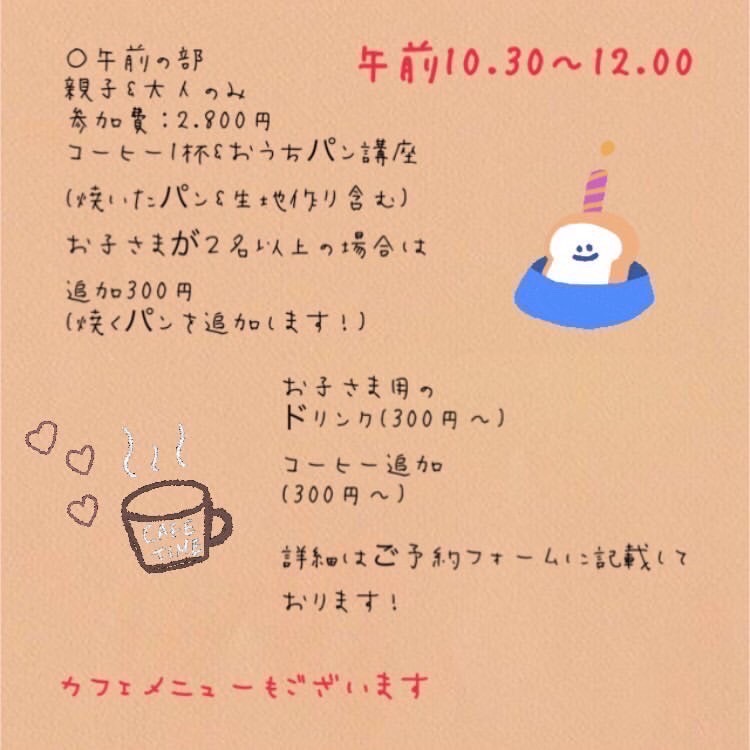 〇午前の部
午前10.30〜12.00
親子&大人のみ
参加費：2.800円
コーヒー1杯&おうちパン講座
(焼いたパン&生地作り含む)
お子さまが2名以上の場合は
追加300円
(焼くパンを追加します！)
お子さま用の
ドリンク(300円〜)
コーヒー追加
(300円〜)
CAFE
TIME
詳細はご予約フォームに記載して
おります！
カフェメニューもございます